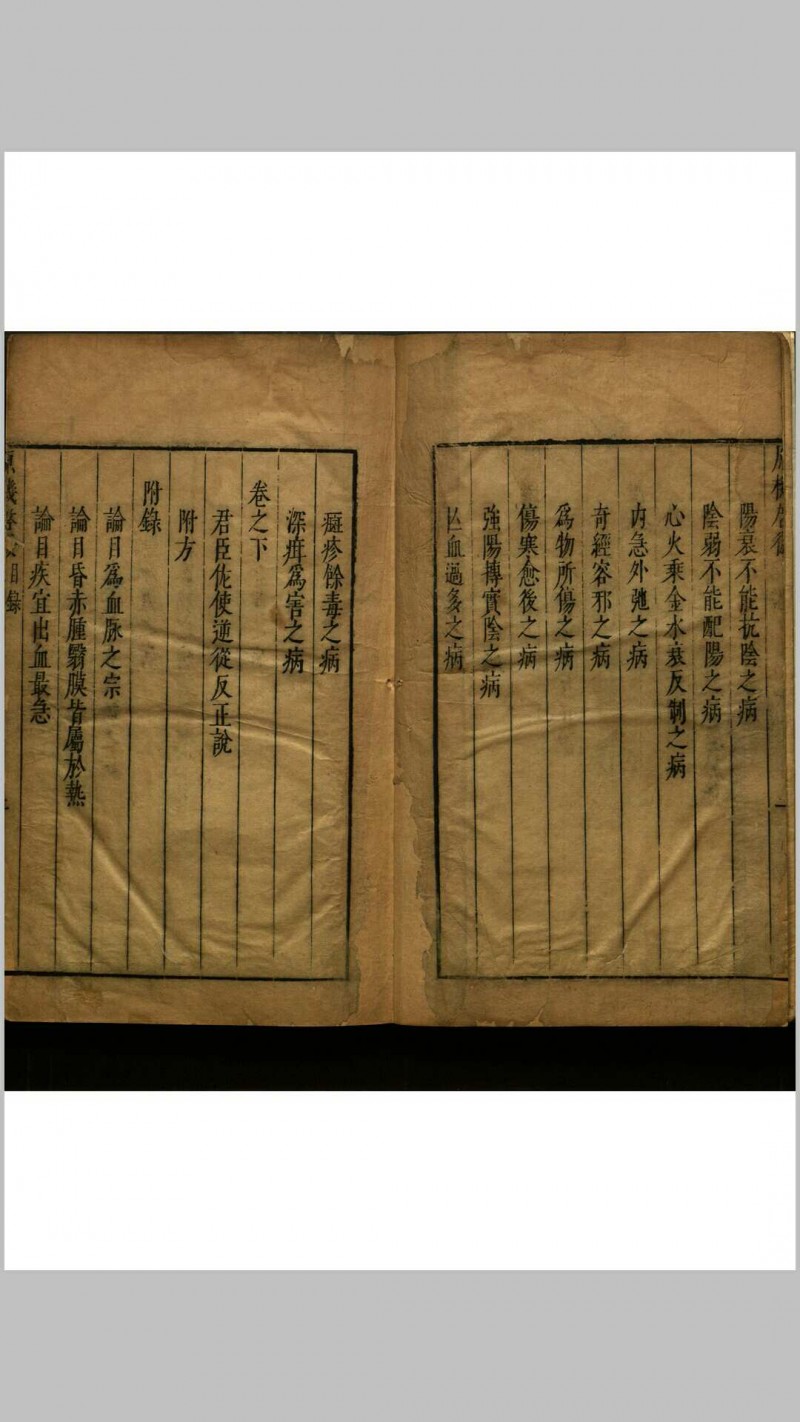 陽衰不能抗陰之病
陰弱不能配陽之病
心火乘金水衰反制之病
内急外弛之病
奇經客邪之病
爲物所傷之病
傷寒愈後之病
強陽摶實陰之病
亾血過多之病
癍疹餘毒之病
深疳爲害之病
卷之下
君臣佐使逆從反正說
附方
附錄
論目爲血脉之宗
論目昏赤腫翳膜皆屬於熱
論目疾宜出血最急
目錄